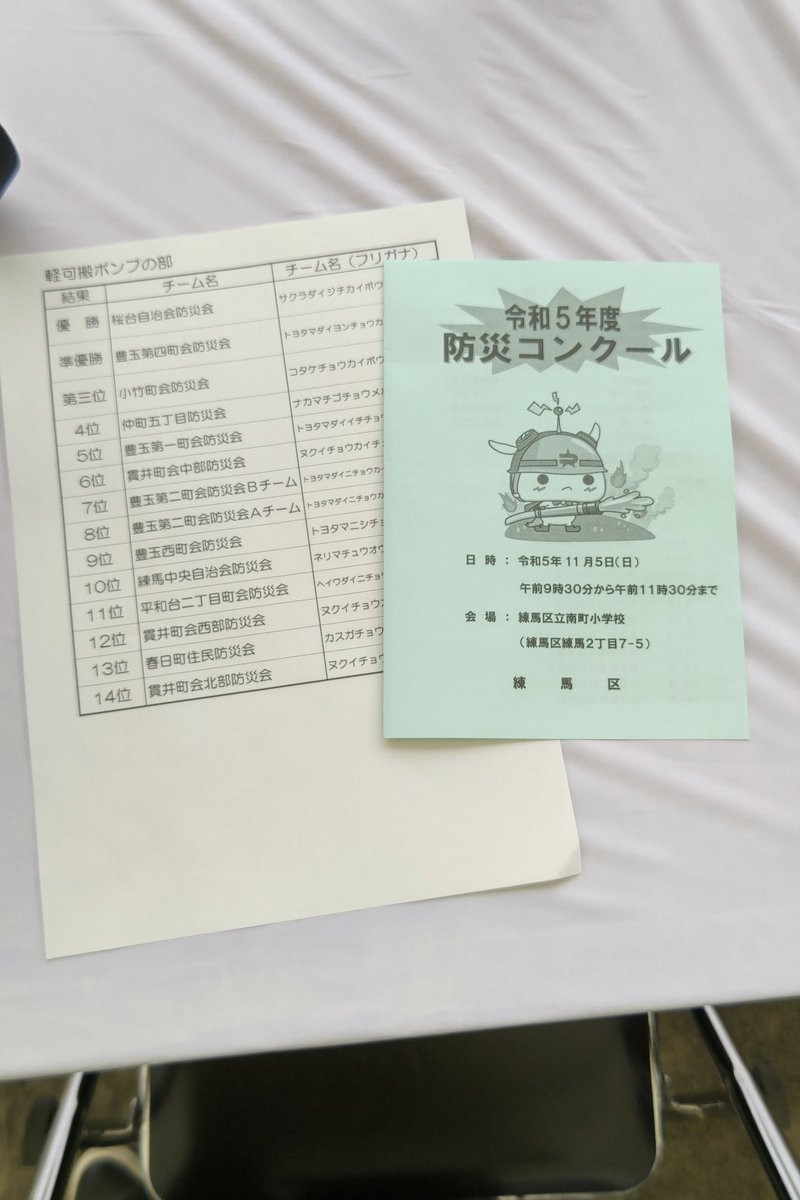 軽可搬ポンプの部
結果 チーム名 チーム名（フリガナ）
優 勝 桜台自治会防災会 サクラダイジチカイボウ
準優勝 豊玉第四町会防災会 トヨタマダイヨンチョウカ
第三位 小竹町会防災会 コタケチョウカイボウ
4位 仲町五丁目防災会 ナカマチゴチョウメ
5位 豊玉第一町会防災会 トヨタマダイイチチョ
6位 貫井町会中部防災会 ヌクイチョウカイチ
7位 豊玉第二町会防災会Bチーム トヨタマダイニチョウカ
8位 豊玉第二町会防災会Aチーム トヨタマダイニチョウカ
9位 豊玉西町会防災会 トヨタマニシチョ
10位 練馬中央自治会防災会 ネリマチュウオウ
11位 平和台二丁目町会防災会 ヘイワダイニチョウ
12位 貫井町会西部防災会 ヌクイチョウカ
13位 春日町住民防災会 カスガチョウ
14位 貫井町会北部防災会 ヌクイチョウ
令和5年度
防災コンクール
日 時 ： 令和5年 11月5日（日）
午前9時30分から午前11時30分まで
会 場 ： 練馬区立南町小学校
（練馬区練馬2丁目7-5）
練 馬 区